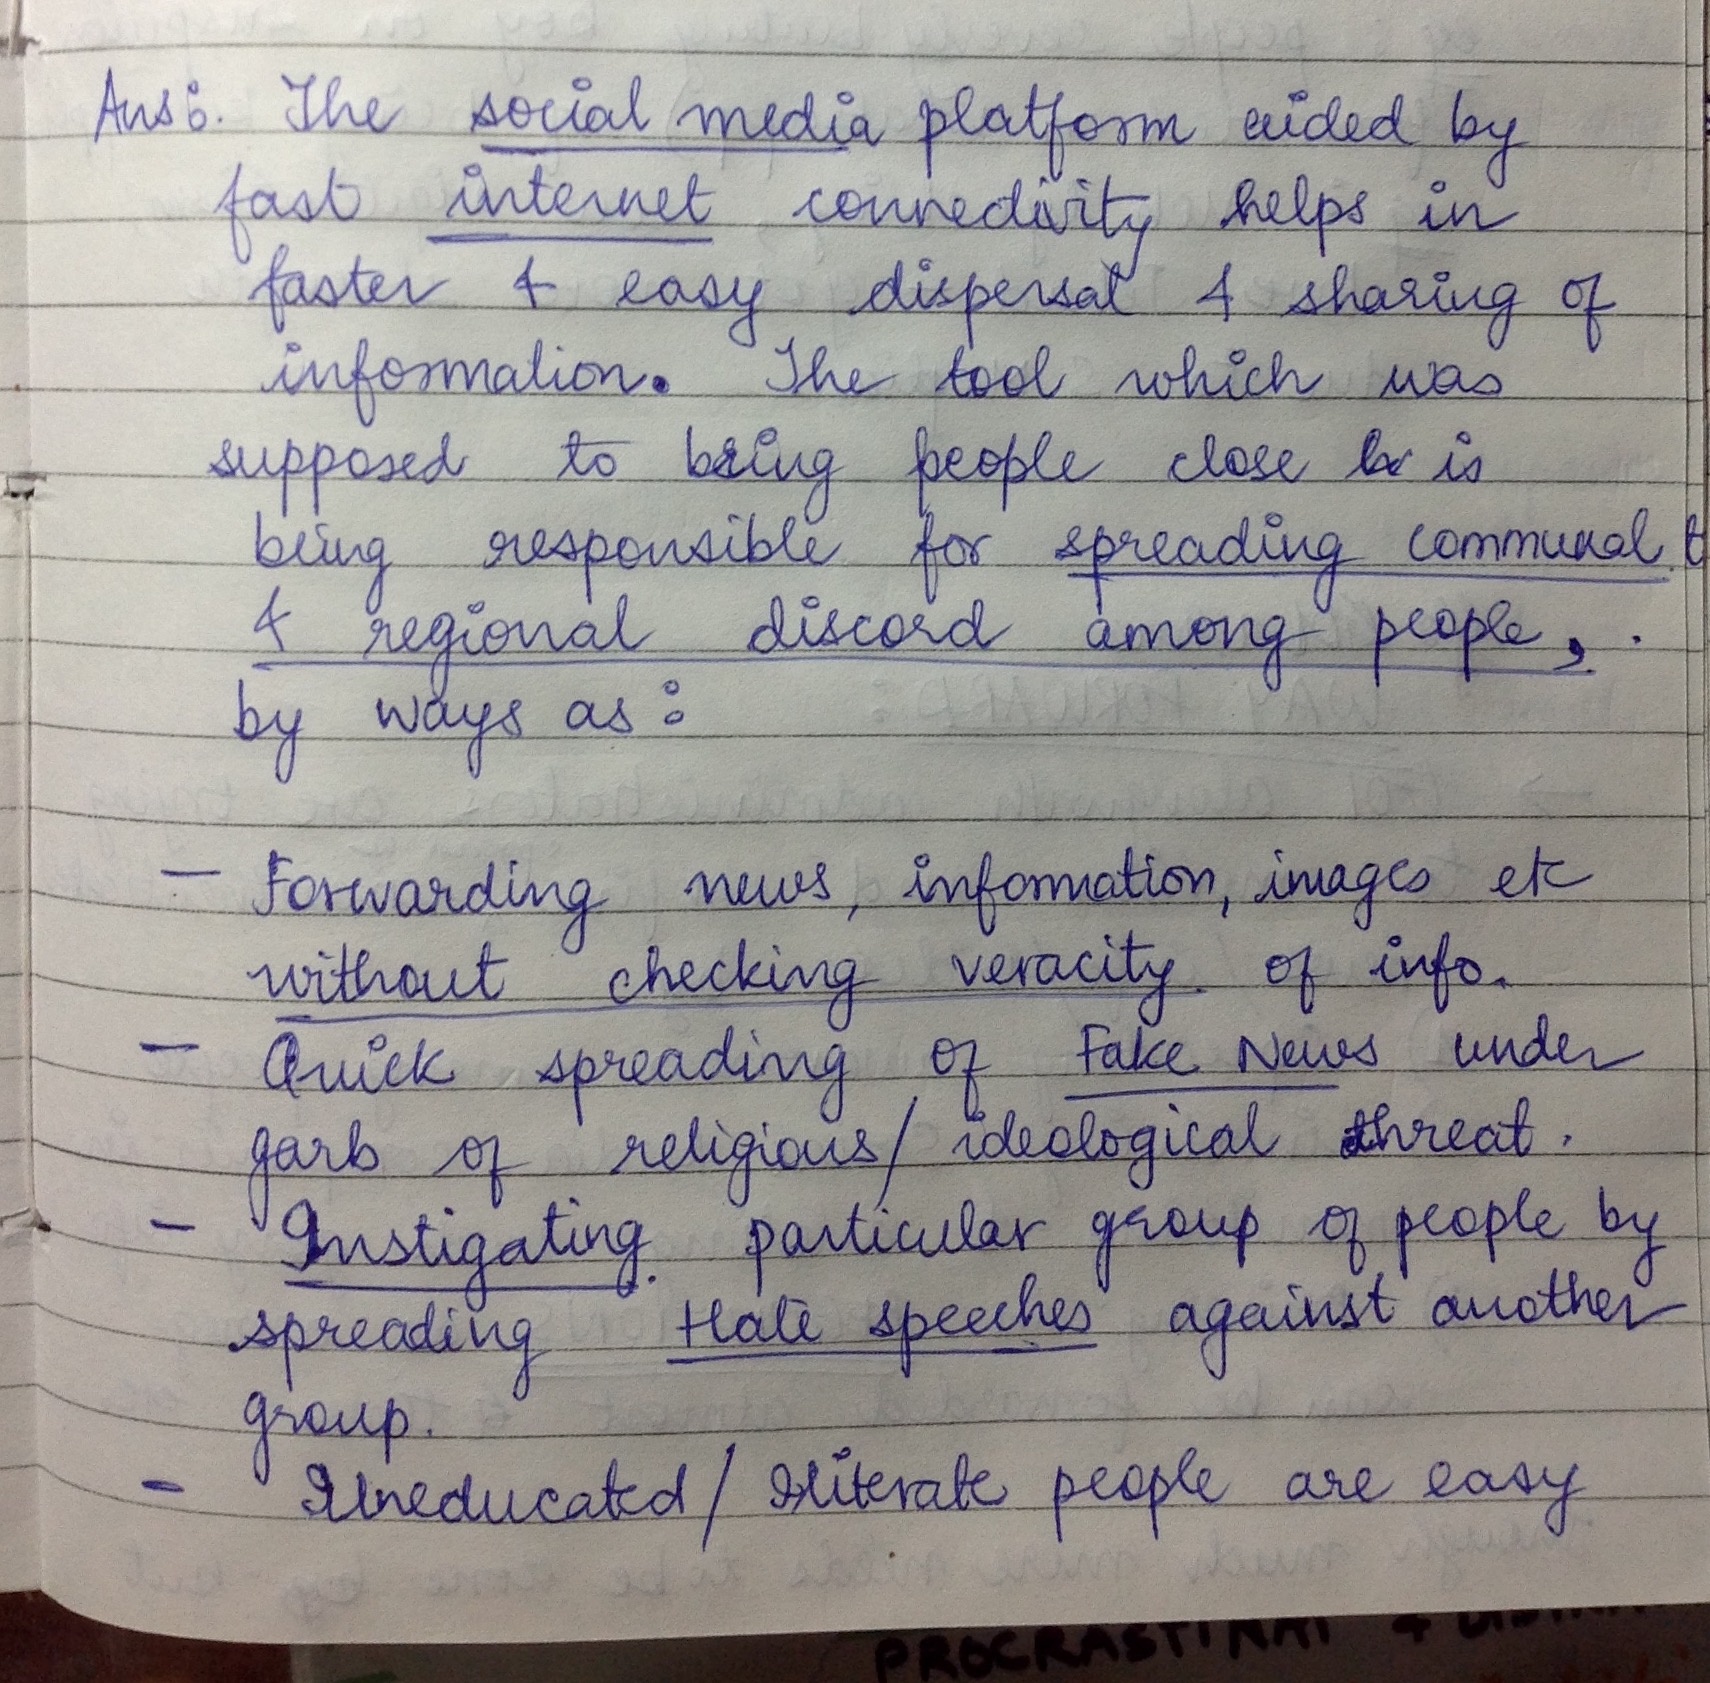 Ans:. The social media platform aided by
fast internet connectivity helps in
faster & easy dispersal & sharing of
information. The tool which was
supposed to bring people close is
being responsible for spreading communal
& regional discord among people,
by ways as:
- Forwarding news, information, images etc
without checking veracity of info.
- Quick spreading of Fake News under
garb of religious/ ideological threat.
- Instigating particular group of people by
spreading Hate speeches against another
group.
- Uneducated/ Illiterate people are easy
PROCRASTINAT &